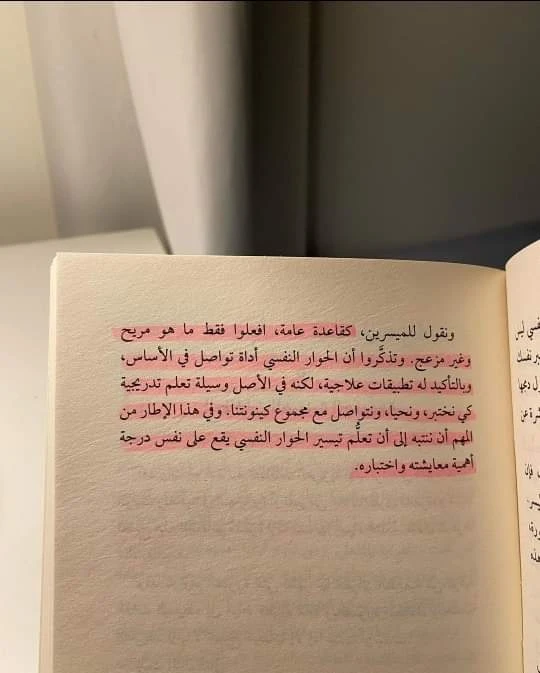 ونقول للميسرين، كقاعدة عامة، افعلوا فقط ما هو مريح
وغير مزعج. وتذكَّروا أن الحوار النفسي أداة تواصل في الأساس،
وبالتأكيد له تطبيقات علاجية، لكنه في الأصل وسيلة تعلم تدريجية
كي نختبر، ونحيا، ونتواصل مع مجموع كينونتنا. وفي هذا الإطار من
المهم أن ننتبه إلى أن تعلُّم تيسير الحوار النفسي يقع على نفس درجة
أهمية معايشته واختباره.
نفسي ليس